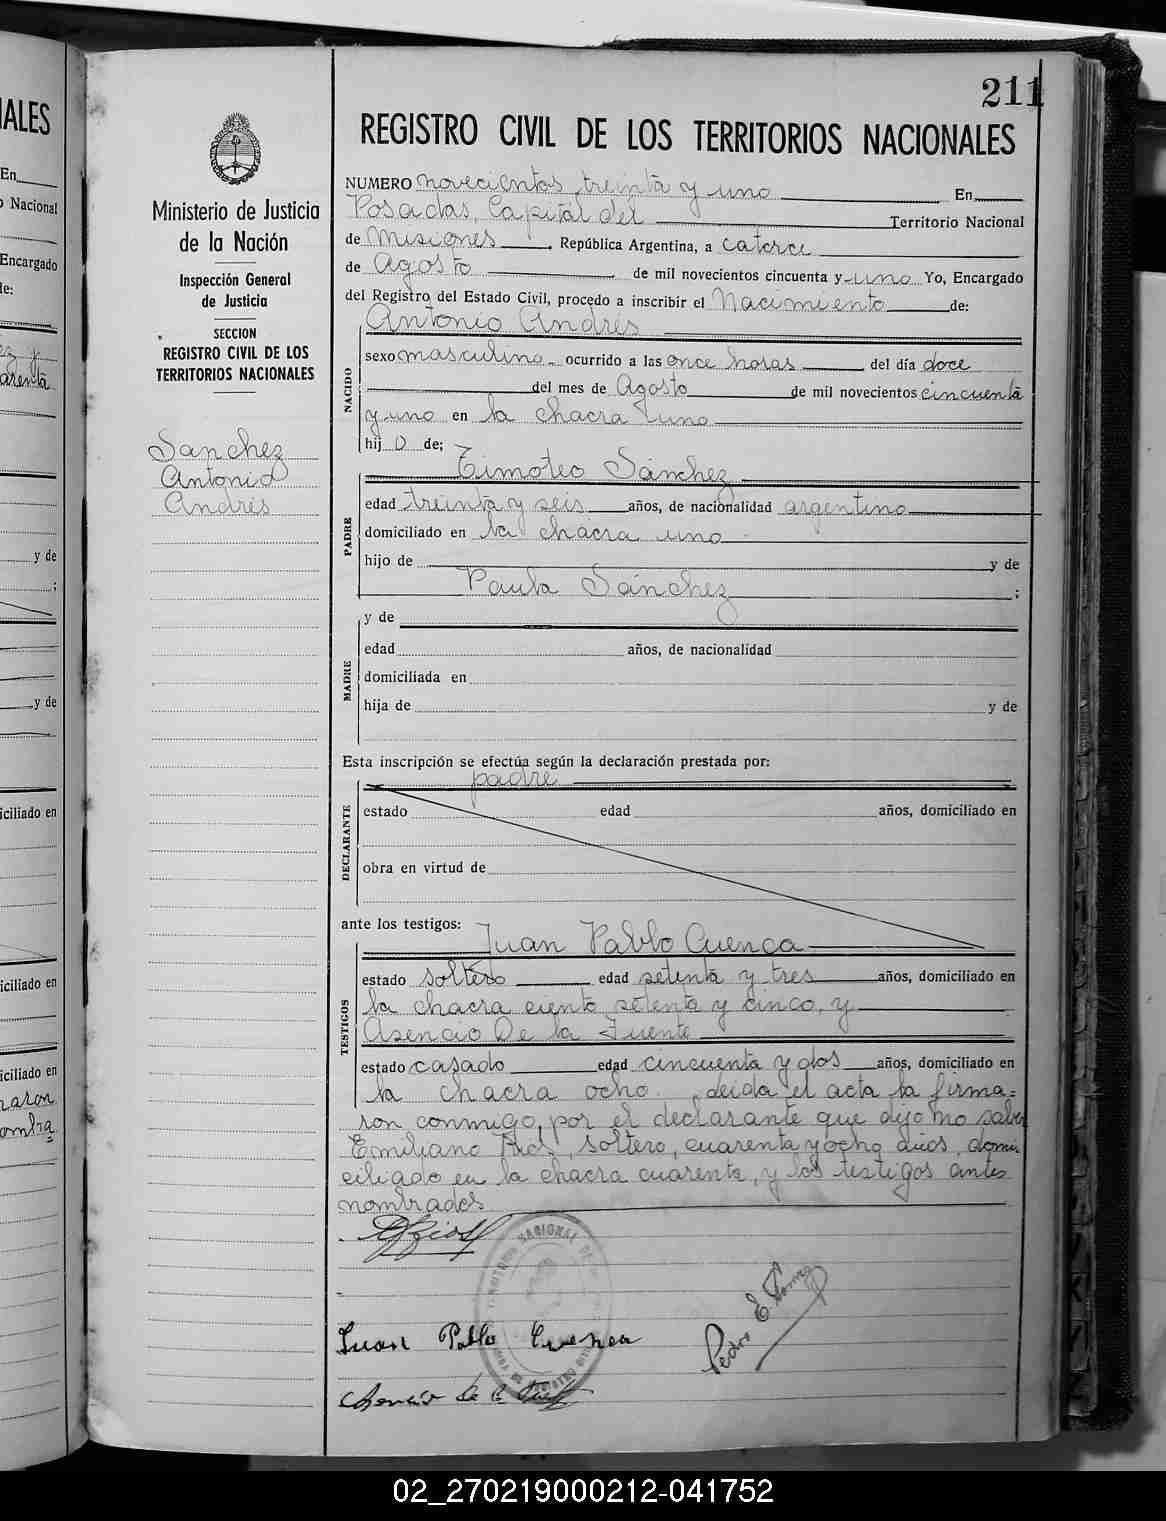 211
REGISTRO CIVIL DE LOS TERRITORIOS NACIONALES
Ministerio de Justicia
de la Nación
Inspección General
de Justicia
SECCION
REGISTRO CIVIL DE LOS
TERRITORIOS NACIONALES
Sanchez
Antonio
Andrés
NUMERO novecientos treinta y uno En
Posadas, Capital del Territorio Nacional
de Misiones, República Argentina, a catorce
de Agosto de mil novecientos cincuenta y uno Yo, Encargado
del Registro del Estado Civil, procedo a inscribir el Nacimiento de:
Antonio Andrés
NACIDO
sexo masculino ocurrido a las once horas del día doce
del mes de Agosto de mil novecientos cincuenta
y uno en la chacra uno
hij o de;
Timoteo Sánchez
PADRE
edad treinta y seis años, de nacionalidad argentino
domiciliado en la chacra uno
hijo de y de
Paula Sánchez ;
y de
MADRE
edad años, de nacionalidad
domiciliada en
hija de y de
Esta inscripción se efectúa según la declaración prestada por:
padre
DECLARANTE
estado edad años, domiciliado en
obra en virtud de
ante los testigos:
Juan Pablo Cuenca
TESTIGOS
estado soltero edad setenta y tres años, domiciliado en
la chacra ciento setenta y cinco, y
Asencio De la Fuente
estado casado edad cincuenta y dos años, domiciliado en
la chacra ocho. Leida el acta la firma=
ron conmigo, por el declarante que dijo no saber
Emiliano soltero, cuarenta y ocho años, domi
ciliado en la chacra cuarenta, y los testigos antes
nombrados
Juan Pablo Cuenca
Pedro E.
Asencio De la
02_270219000212-041752